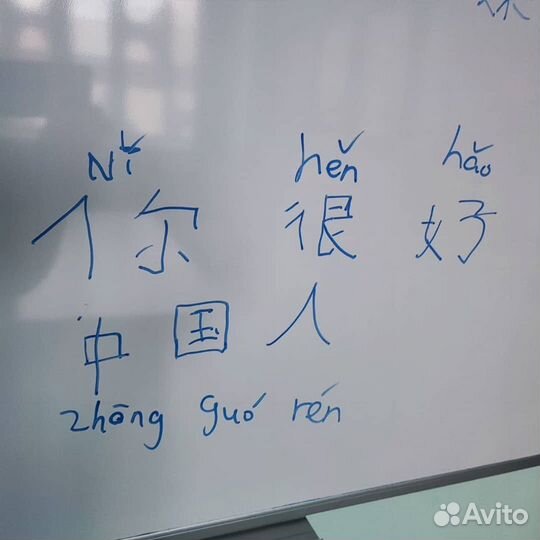 nǐ hěn hǎo
你 很 好
中 国 人
zhōng guó rén
Avito